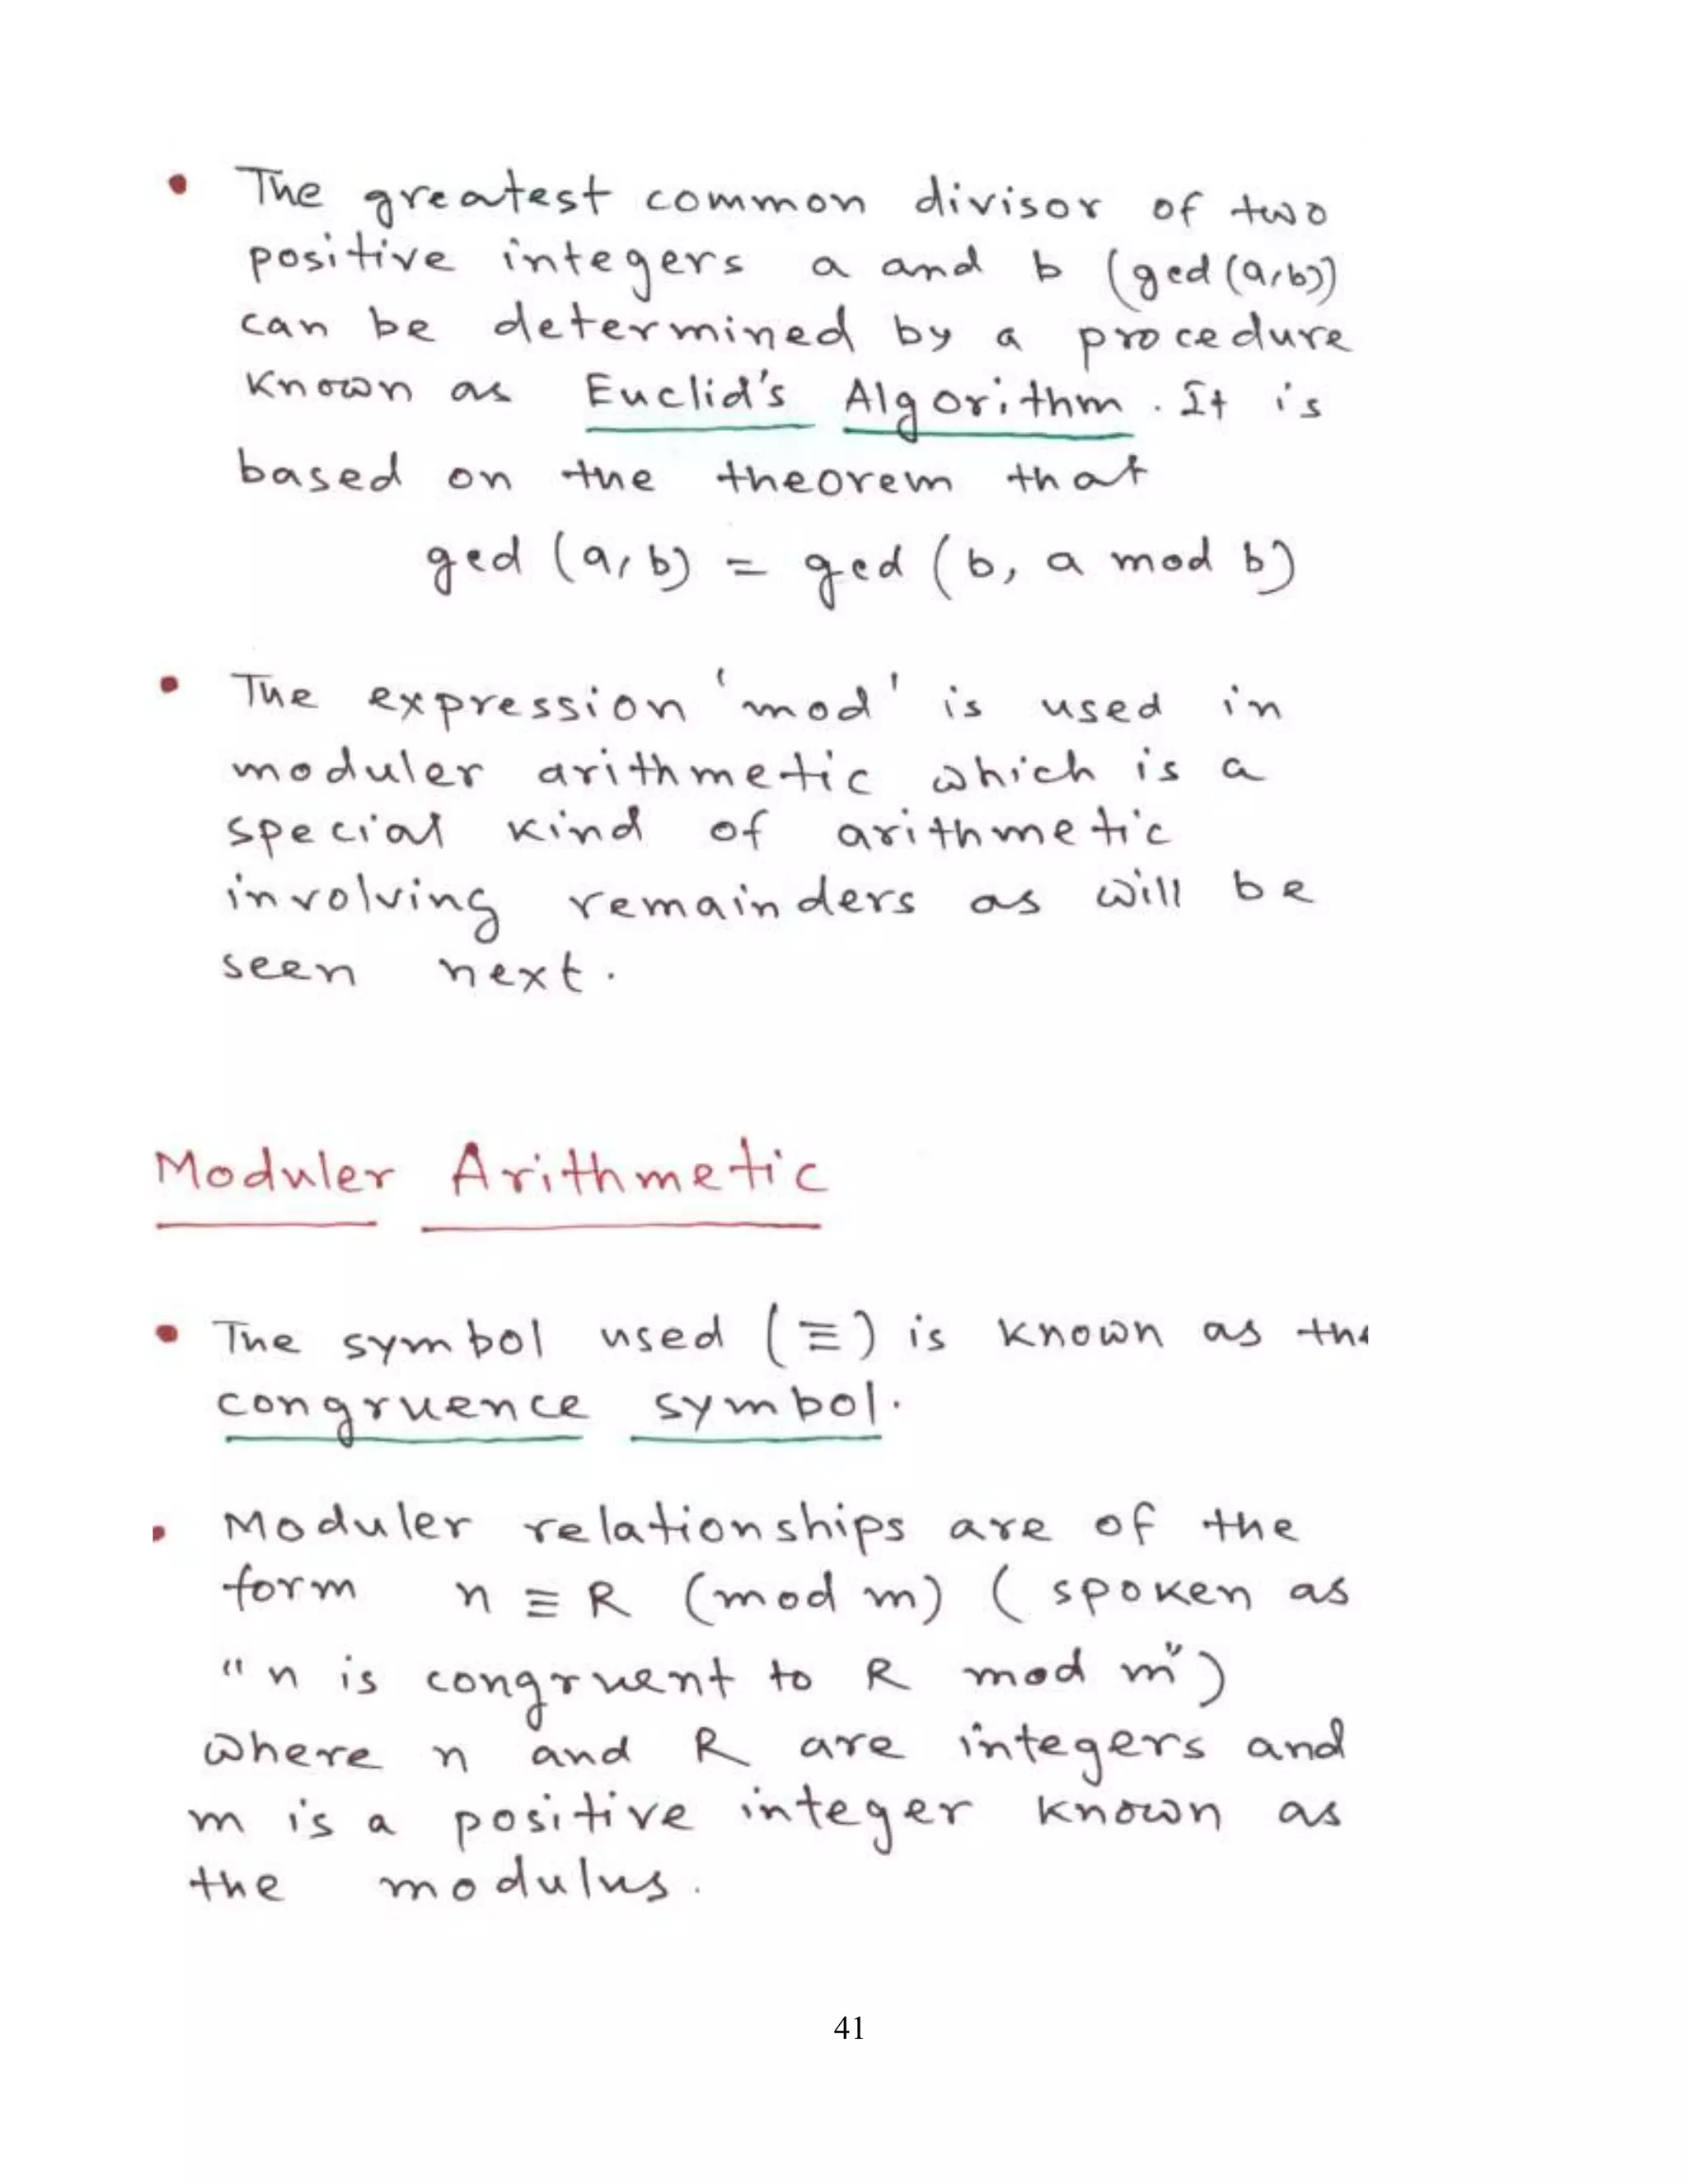 • The greatest common divisor of two
positive integers a and b (gcd (a,b))
can be determined by a procedure
known as Euclid's Algorithm. It is
based on the theorem that
gcd (a, b) = gcd (b, a mod b)
• The expression 'mod' is used in
moduler arithmetic which is a
special kind of arithmetic
involving remainders as will be
seen next.
Moduler Arithmetic
• The symbol used (≡) is known as the
congruence symbol.
• Moduler relationships are of the
form n ≡ R (mod m) ( spoken as
"n is congruent to R mod m")
where n and R are integers and
m is a positive integer known as
the modulus.
41